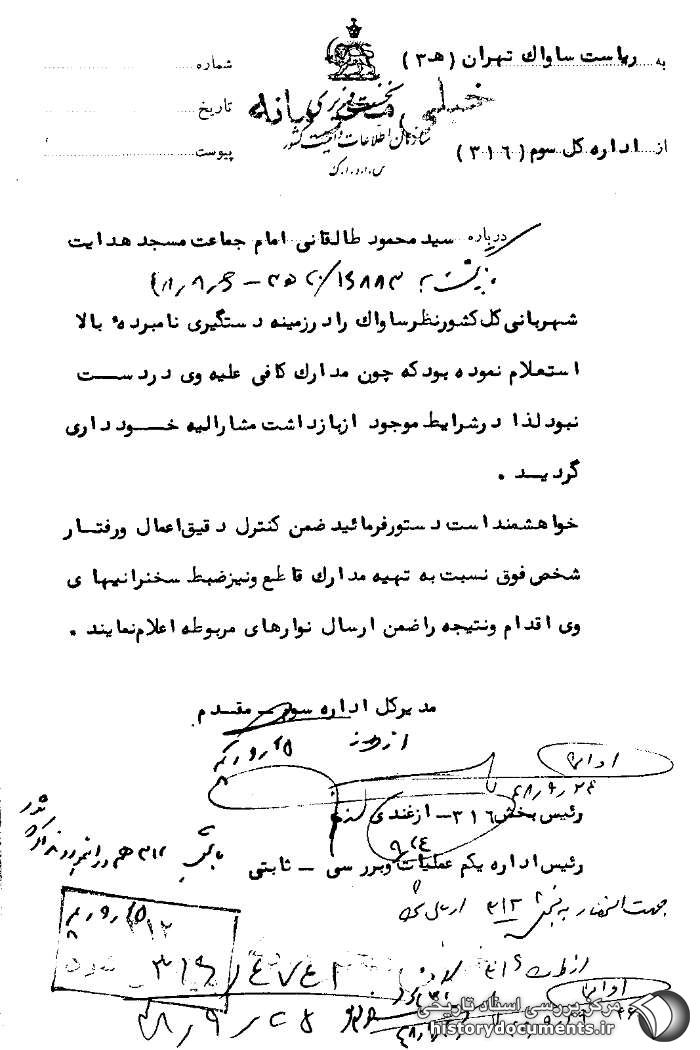 به ریاست ساواک تهران (هـ ۳)
شماره
نخست وزیری
خیلی محرمانه
تاریخ
سازمان اطلاعات و امنیت کشور
از اداره کل سوم (۳۱۶)
پیوست
س.ا.و.ا.ک
درباره سید محمود طالقانی امام جماعت مسجد هدایت
شهربانی کل کشور نظر ساواک را در زمینه دستگیری نامبرده بالا
استعلام نموده بود که چون مدارک کافی علیه وی در دست
نبود لذا در شرایط موجود از بازداشت مشارالیه خودداری
گردید .
خواهشمند است دستور فرمائید ضمن کنترل دقیق اعمال و رفتار
شخص فوق نسبت به تهیه مدارک قاطع و نیز ضبط سخنرانیهای
وی اقدام و نتیجه را ضمن ارسال نوارهای مربوطه اعلام نمایند .
مدیر کل اداره سوم - مقدم
رئیس بخش ۳۱۶ - ازغندی
رئیس اداره یکم عملیات و بررسی - ثابتی
جهت استحضار به بخش ۳۱۲ ارسال
۳۱۲
مرکز بررسی اسناد تاریخی
historydocuments.ir